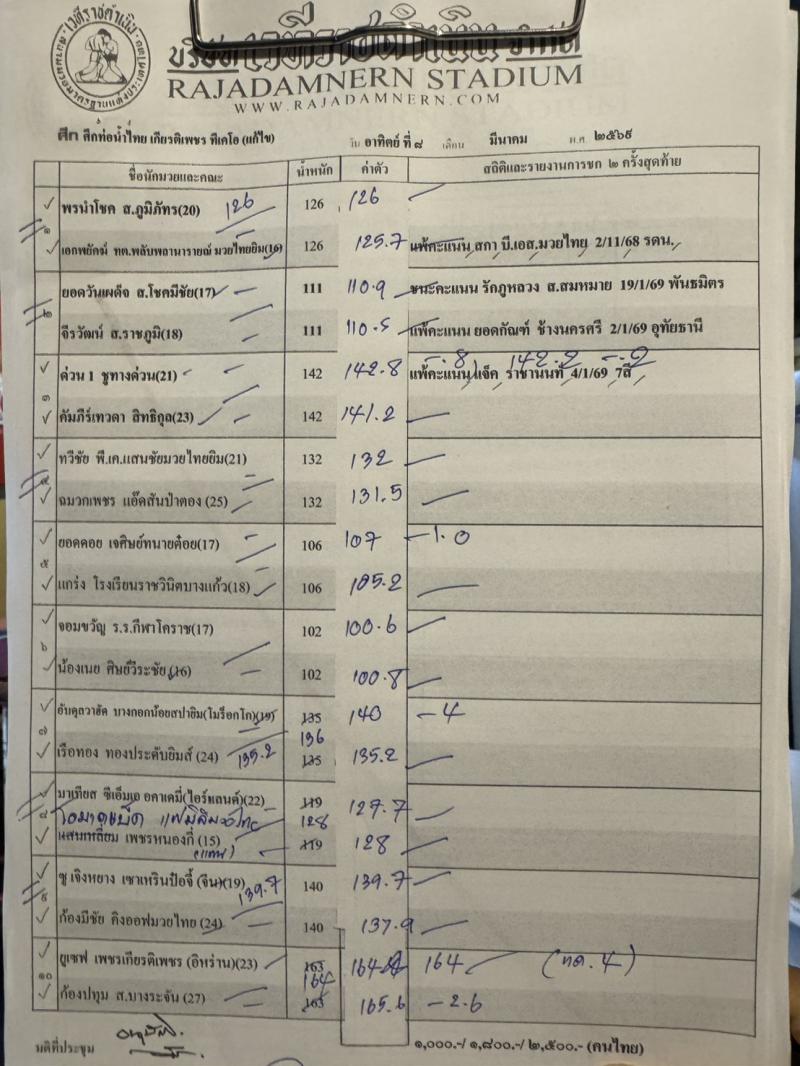 เวทีราชดำเนิน
บริษัท เวทีราชดำเนิน จำกัด
RAJADAMNERN STADIUM
WWW.RAJADAMNERN.COM
ศึก ศึกท่อน้ำไทย เกียรติเพชร ทีเคโอ (แก้ไข) วัน อาทิตย์ ที่ ๘ เดือน มีนาคม พ.ศ ๒๕๖๙
ชื่อนักมวยและคณะ น้ำหนัก ค่าตัว สถิติและรายงานการชก ๒ ครั้งสุดท้าย
๑ พรนำโชค ส.ภูมิภัทร(20) 126 126 126
เอกพยัคฆ์ ทต.พลับพลานารายณ์ มวยไทยยิม(16) 126 125.7 แพ้คะแนน สกา บี.เอส.มวยไทย 2/11/68 รดน.
๒ ยอดวันเผด็จ ส.โชคมีชัย(17) 111 110.9 ชนะคะแนน รักภูหลวง ส.สมหมาย 19/1/69 พันธมิตร
จีรวัฒน์ ส.ราชภูมิ(18) 111 110.5 แพ้คะแนน ยอดกัณฑ์ ช้างนครศรี 2/1/69 อุทัยธานี
๓ ด่วน 1 ชูทางด่วน(21) 142 142.8 -.8 142.2 -.2 แพ้คะแนน แจ็ค ราชานนท์ 4/1/69 7สี
คัมภีร์เทวดา สิทธิกุล(23) 142 141.2
๔ ทวีชัย พี.เค.แสนชัยมวยไทยยิม(21) 132 132
ฉมวกเพชร แอ๊ดสันป่าตอง (25) 132 131.5
๕ ยอดดอย เจศิษย์ทนายต๋อย(17) 106 107 -1.0
แกร่ง โรงเรียนราชวินิตบางแก้ว(18) 106 105.2
๖ จอมขวัญ ร.ร.กีฬาโคราช(17) 102 100.6
น้องเนย ศิษย์วีระชัย(16) 102 100.8
๗ อับดุลวาฮัด บางกอกน้อยสปายิม(โมร็อกโก)(19) 135 140 -4
136
เรือทอง ทองประดับยิมส์ (24) 135.2 135 135.2
๘ มาเทียส ซีเอ็มเอ อคาเดมี่(ไอร์แลนด์)(22) 119 127.7
128
แสนเหลี่ยม เพชรหนองกี่ (15) 119 128
(แทน)
๙ ซู เจิงหยาง เซาเหรินป๋อจี้ (จีน)(19) 139.7 140 139.7
ก้องมีชัย คิงออฟมวยไทย (24) 140 137.9
๑๐ ยูเซฟ เพชรเกียรติเพชร (อิหร่าน)(23) 163 164.4 164 (ทด. 4)
164
ก้องปทุม ส.บางระจัน (27) 163 165.6 -2.6
มติที่ประชุม ๑,๐๐๐.-/ ๑,๘๐๐.-/ ๒,๕๐๐.- (คนไทย)